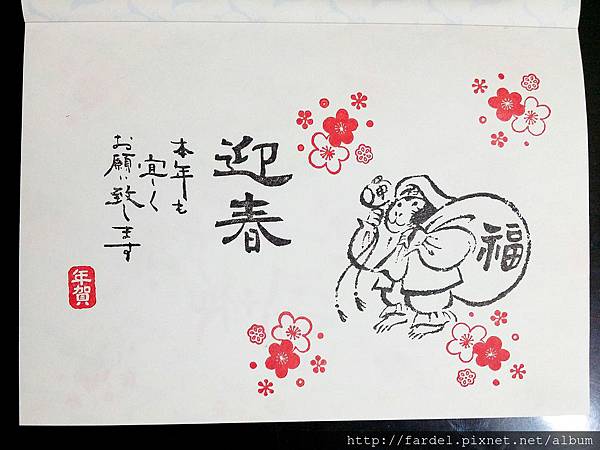 迎春
本年も
宜しく
お願い致します
年賀
申
福
http://fardel.pixnet.net/album